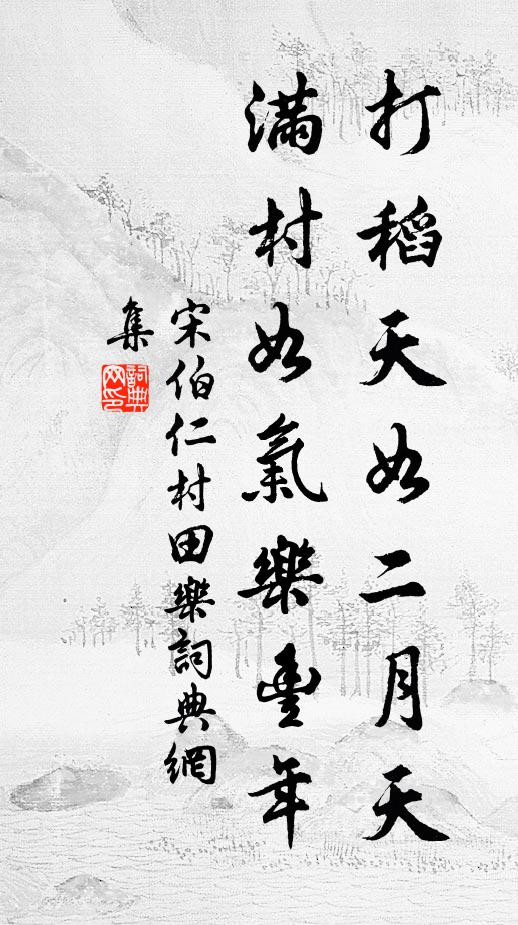 打稻天如二月天
滿村如氣樂豐年
宋伯仁村田樂詞典網
集
詞典
网印